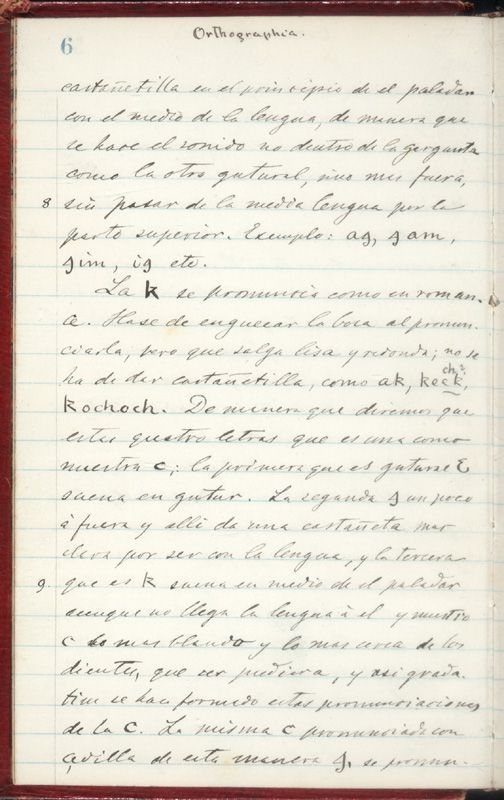 6
Orthographia.
castañetilla en el principio de el paladar
con el medio de la lengua, de manera que
se hace el sonido no dentro de la garganta
como la otra gutural, sino mas fuera,
8 sin pasar de la media lengua por la
parte superior. Exemplo: ag, gam,
gim, ig etc.
La k se pronuncia como en roman-
ce. Hase de enguecar la boca al pronun-
ciarla, pero que salga lisa y redonda; no se
ha de dar castañetilla, como ak, keck, ch?
kochoch. De manera que diremos que
estas quatro letras que es una como
nuestra c,: la primera que es gutural Ɛ
suena en gutur. La segunda g un poco
á fuera y alli da una castañeta mas
clara por ser con la lengua, y la tercera
9. que es k suena en medio de el paladar
aunque no llega la lengua á el y nuestro
c lo mas blando y lo mas cerca de los
dientes, que ser pudiera, y asi grada-
tim se han formado estas pronunciaciones
de la c. La misma c pronunciada con
cedilla de esta manera ç, se pronun-